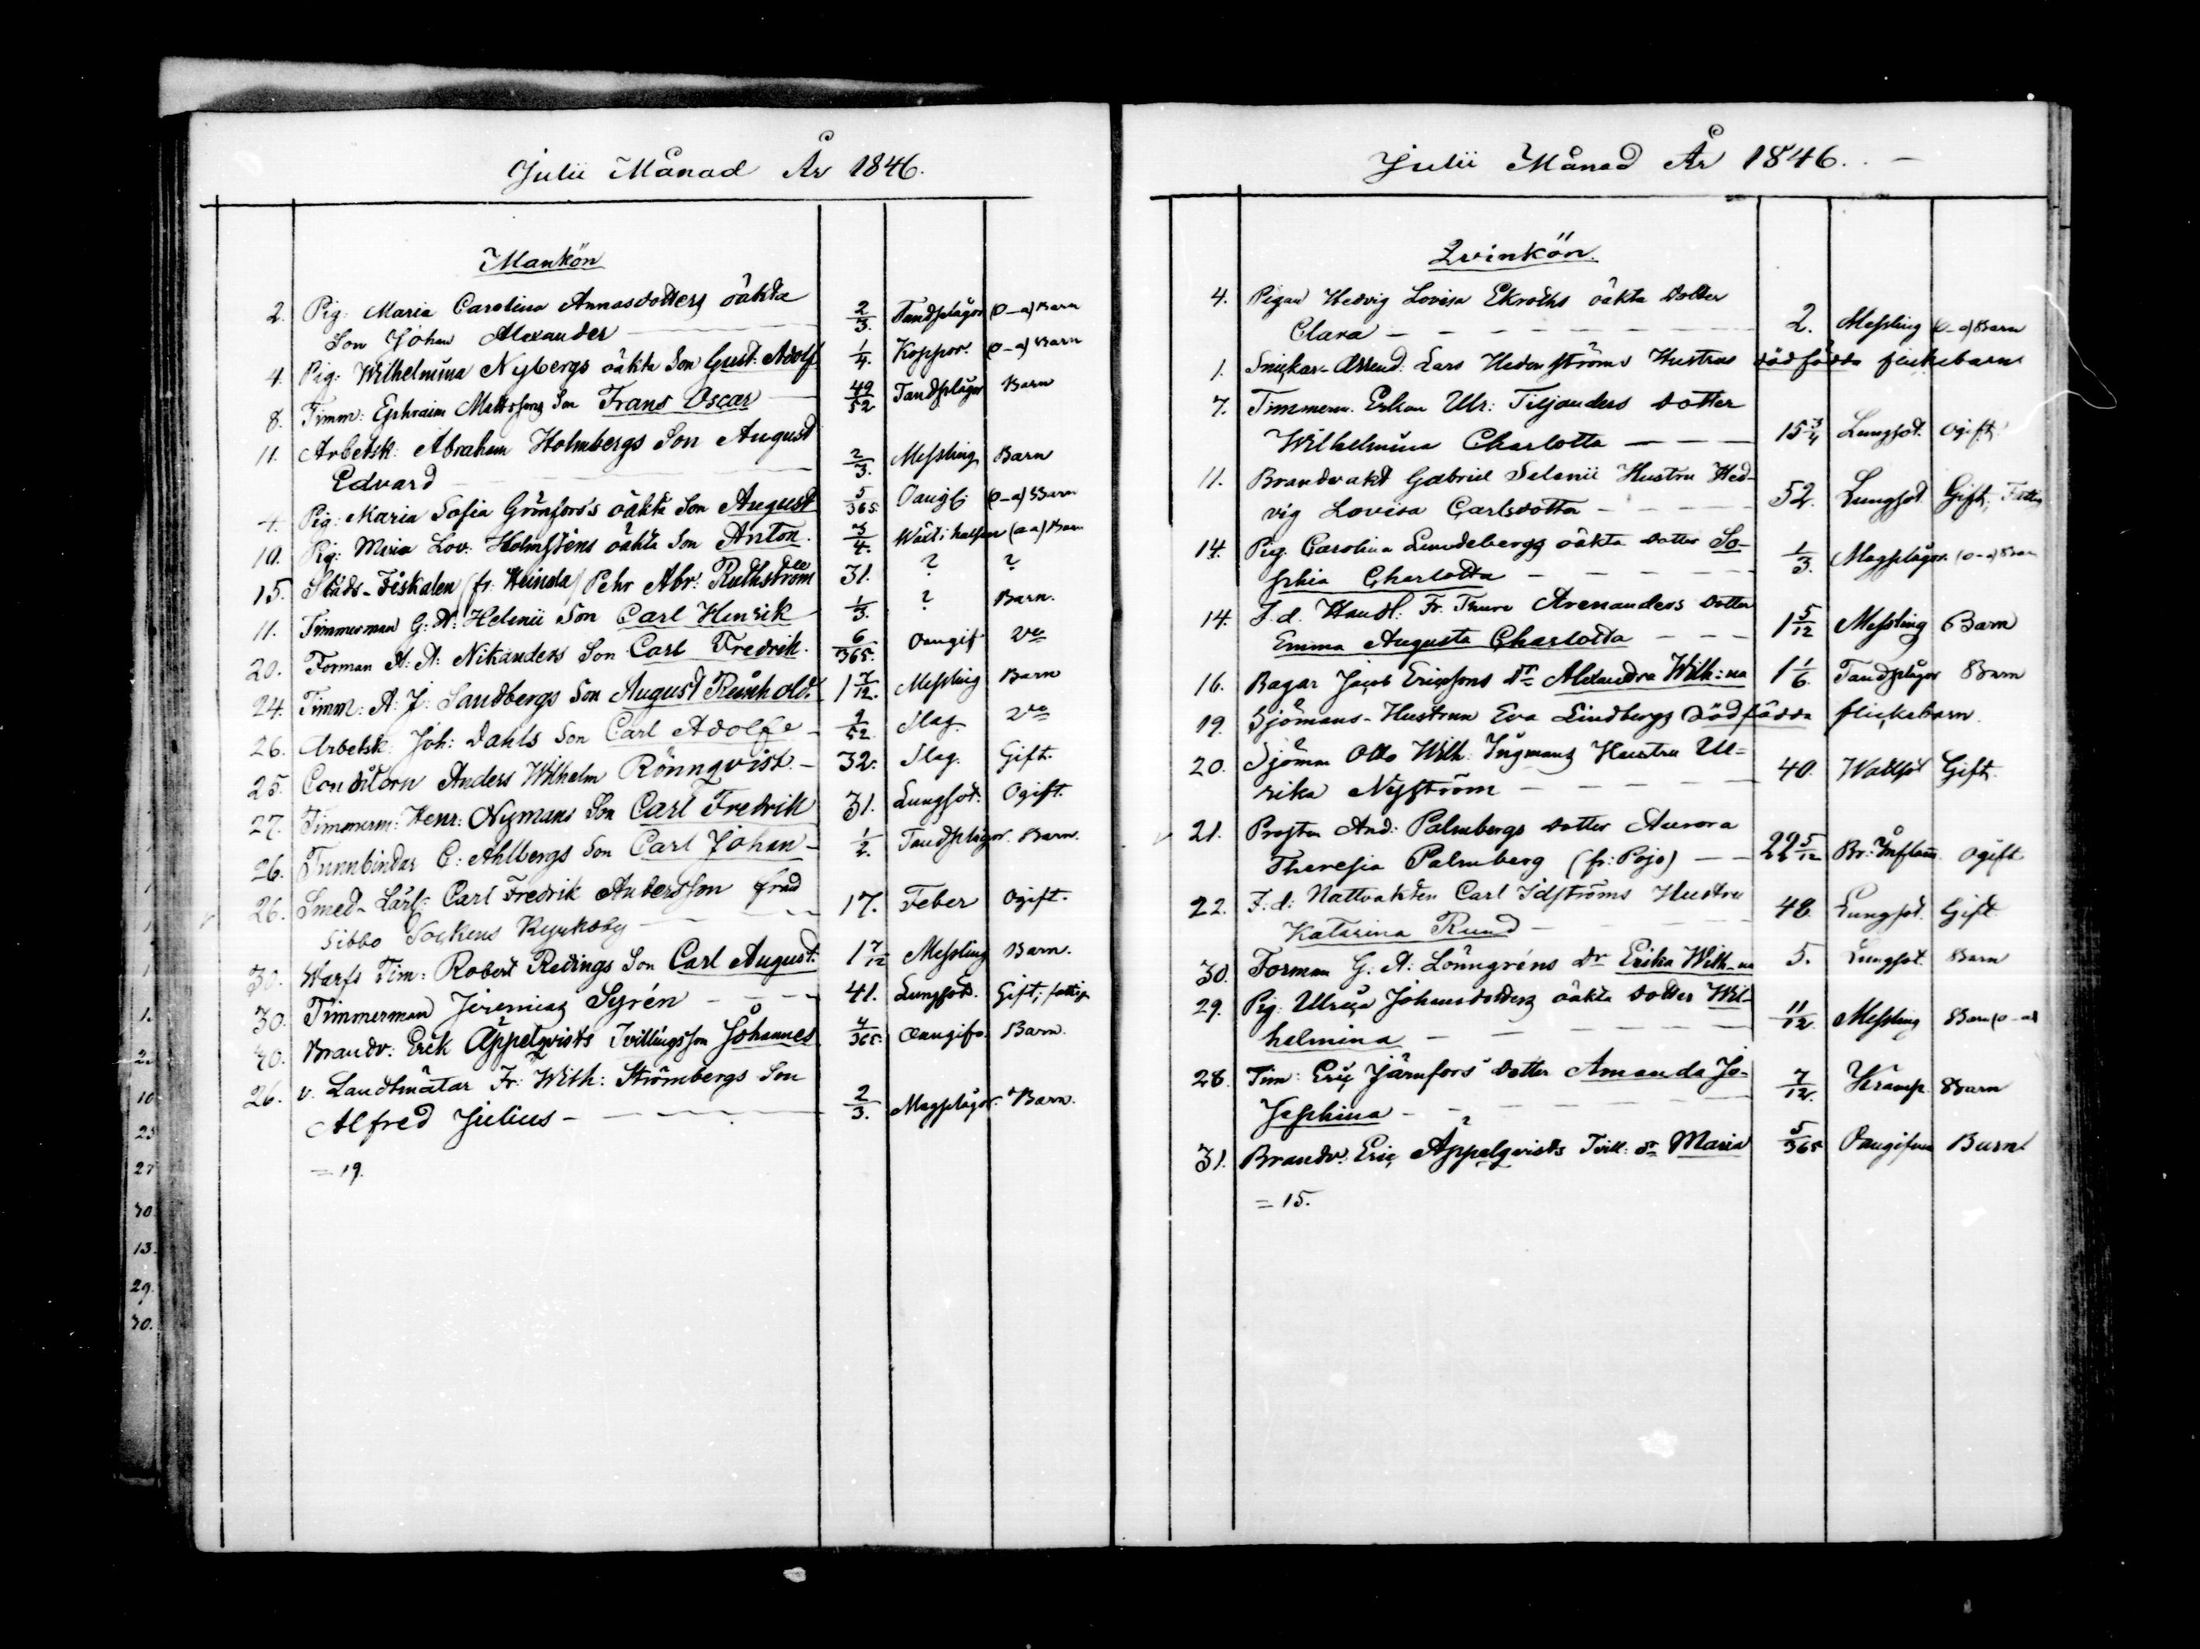 Julii Månad År 1846.
Mankön
2. Pig: Maria Carolina Annasdotters oäkta
Son Johan Alexander 2/3. Tandplågor (o-a) Barn
4. Pig: Wilhelmina Nybergs oäkta Son Gust: Adolf 1/4. Koppor. (o-a) Barn
8. Timm: Ephraim Mattssons Son Frans Oscar 49/52 Tandplågor Barn
11. Arbetsk: Abraham Holmbergs Son August
Edvard 2/3. Messling Barn
4. Pig: Maria Sofia Grönfors's oäkta Son August 5/365 Oangif: (o-a) Barn
10. Pig: Maria Lov: Holmsténs oäkta Son Anton. 3/4. Wärk i halsen (o-a) Barn
15. Stads-Fiskalen (fr. Heinola) Pehr Abr: Ruthström 31. ? ?
11. Timmerman G: W: Helenii Son Carl Henrik 1/3. ? Barn.
20. Forman A: A: Nikanders Son Carl Fredrik. 6/365. Oangif
24. Timm: A: J: Sandbergs Son August Reinhold. 1 7/12. Messling Barn
26. Arbetsk: Joh: Dahls Son Carl Adolf 1/52 Slag.
25. Conditorn Anders Wilhelm Rönnqvist.- 32. Slag. Gift.
27. Timmerm: Henr: Nymans Son Carl Fredrik 31. Lungsot. Ogift.
26. Tunnbindar C: Ahlbergs Son Carl Johan- 1/2. Tandplågor. Barn.
26. Smed-Lärl: Carl Fredrik Andersson från
Sibbo Sockens 17. Feber Ogift.
30. Warfs Tim: Robert Redings Son Carl August: 1 7/12 Messling Barn.
30. Timmerman Jeremias Syrén 41. Lungsot. Gift; fattig
30. Brandv: Erik Äppelqvists Tvillingsson Johannes 4/365. Oangifv. Barn.
26. v. Landtmätar Fr: Wilh: Strömbergs Son
Alfred Julius - 2/3. Magplågor. Barn.
= 19.
Julii Månad År 1846. -
Qvinkön.
4. Pigan Hedvig Lovisa Ekroths oäkta dotter
Clara - 2. Messling (o-a) Barn
1. Snickar-Arrend: Lars Hedenströms Hustrus dödfödda flickebarn
7. Timmerm. Erkan Ulr: Tiljanders dotter
Wilhelmina Charlotta 15 3/4 Lungsot. Ogift
11. Brandvakt Gabriel Selenii Hustru Hed-
vig Lovisa Carlsdotter 52. Lungsot Gift, Fattig
14. Pig. Carolina Lundebergs oäkta dotter So-
phia Charlotta 1/3. Magplågor. (o-a) Barn
14. F.d. Handl: Fr. Thure Arenanders dotter
Emma Augusta Charlotta 1 5/12 Messling Barn
16. Bagar Jacob Ericssons dr Alexandra Wilh:na 1 1/6. Tandplågor Barn
19. Sjömans-Hustrun Eva Lindbergs dödfödda flickebarn.
20. Sjömn Otto Wilh: Ingmans Hustru Ul-
rika Nyström 40. Wattsot Gift.
21. Prosten And: Palmbergs dotter Aurora
Theresia Palmberg (fr: Pojo) 22 5/12 Br: Inflam. Ogift
22. F.d: Nattvakten Carl Idströms Hustru
Katarina Rund 48 Lungsot. Gift
30. Forman G: A: Lönngréns dr Erika Wilh-na 5. Lungsot. Barn
29. Pig. Ulrica Johansdotters oäkta dotter Wil-
helmina 11/12. Messling Barn (o-a)
28. Tim: Eric Järnfors' dotter Amanda Jo-
sephina 7/12. Kramp. Barn
31. Brandv: Eric Äppelqvists Tvill: dr Maria 5/365 Oangifven Barn
= 15.
1.
2.
10
25
27
30
13.
29.
30.